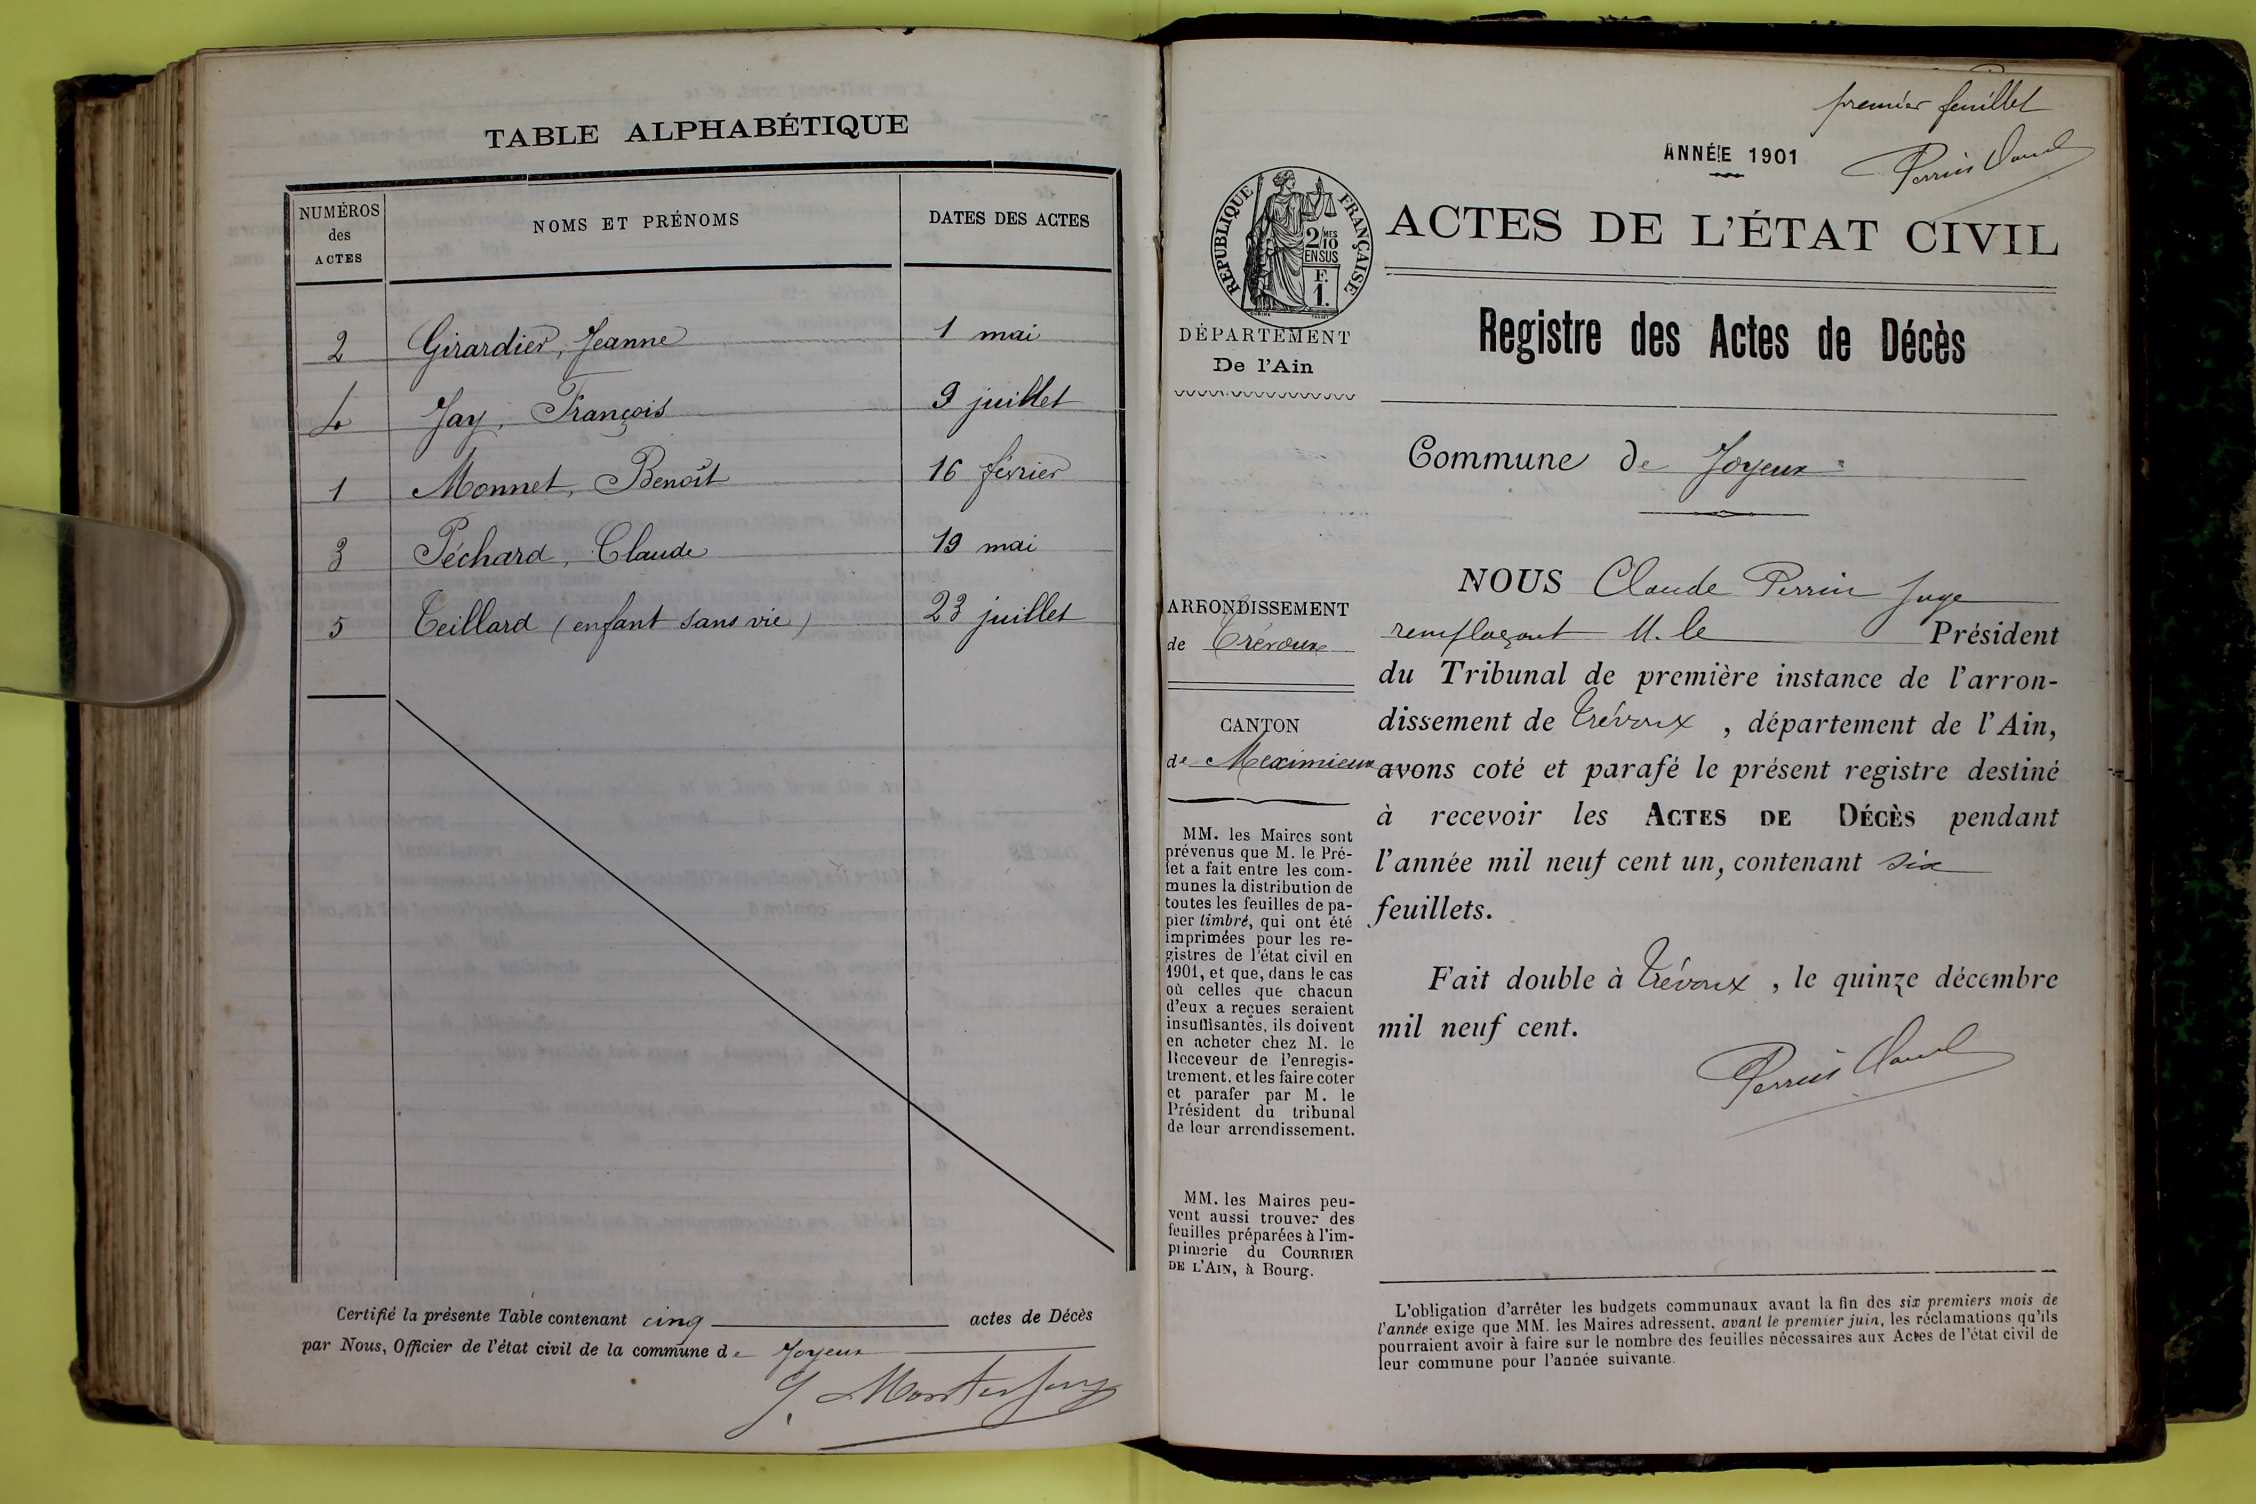 TABLE ALPHABÉTIQUE
NUMÉROS des ACTES
NOMS ET PRÉNOMS
DATES DES ACTES
2 Girardier, Jeanne 1 mai
4 Jay, François 9 juillet
1 Monnet, Benoît 16 février
3 Péchard, Claude 19 mai
5 Teillard (enfant sans vie) 23 juillet
Certifié la présente Table contenant cinq actes de Décès
par Nous, Officier de l'état civil de la commune de Joyeux
premier feuillet
Perrin Claude
ANNÉE 1901
RÉPUBLIQUE FRANÇAISE
2/10 EN SUS
F. 1.
ACTES DE L'ÉTAT CIVIL
DÉPARTEMENT
De l'Ain
Registre des Actes de Décès
Commune de Joyeux
ARRONDISSEMENT
de Trévoux
CANTON
de Meximieux
MM. les Maires sont
prévenus que M. le Pré-
fet a fait entre les com-
munes la distribution de
toutes les feuilles de pa-
pier timbré, qui ont été
imprimées pour les re-
gistres de l'état civil en
1901, et que, dans le cas
où celles que chacun
d'eux a reçues seraient
insuffisantes, ils doivent
en acheter chez M. le
Receveur de l'enregis-
trement, et les faire coter
et parafer par M. le
Président du tribunal
de leur arrondissement.
MM. les Maires peu-
vent aussi trouver des
feuilles préparées à l'im-
primerie du COURRIER
DE L'AIN, à Bourg.
NOUS Claude Perrin Juge
remplaçant M. le Président
du Tribunal de première instance de l'arron-
dissement de Trévoux, département de l'Ain,
avons coté et parafé le présent registre destiné
à recevoir les ACTES DE DÉCÈS pendant
l'année mil neuf cent un, contenant six
feuillets.
Fait double à Trévoux, le quinze décembre
mil neuf cent.
Perrin Claude
L'obligation d'arrêter les budgets communaux avant la fin des six premiers mois de
l'année exige que MM. les Maires adressent, avant le premier juin, les réclamations qu'ils
pourraient avoir à faire sur le nombre des feuilles nécessaires aux Actes de l'état civil de
leur commune pour l'année suivante.